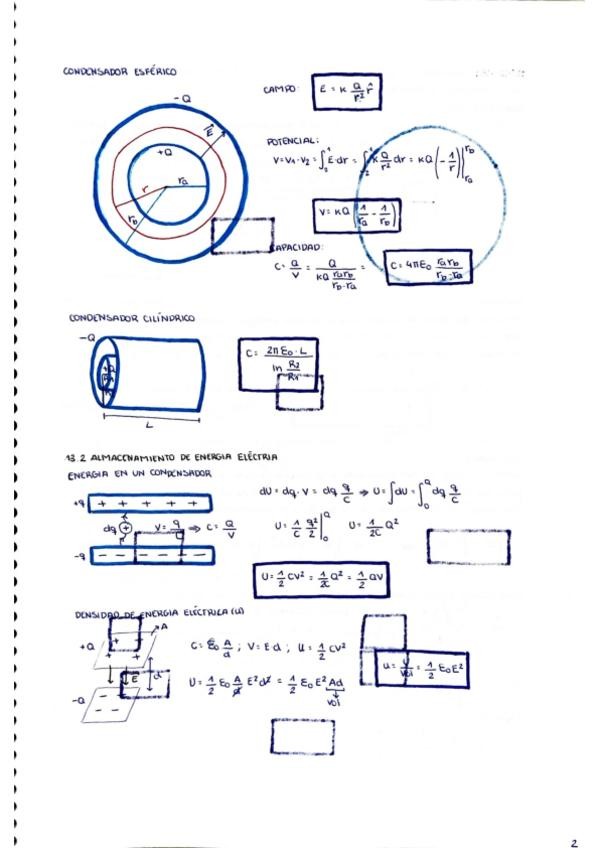 CONDENSADOR ESFÉRICO
-Q
+Q
E
r
ra
rb
CAMPO: E = K Q/r² r̂
POTENCIAL:
V = V₁-V₂ = ∫₂¹ E·dr = ∫₂¹ K Q/r² dr = KQ (-1/r)|ra rb
V = KQ (1/ra - 1/rb)
CAPACIDAD:
C = Q/V = Q/(KQ (rarb)/(rb-ra)) = C = 4πε₀ rarb/(rb-ra)
CONDENSADOR CILÍNDRICO
-Q
+Q
R1
L
C = 2πε₀·L / ln R2/R1
13.2 ALMACENAMIENTO DE ENERGIA ELÉCTRIA
ENERGIA EN UN CONDENSADOR
+q + + + + +
dq + V = q/C ⇒ C = Q/V
-q - - - - - -
dU = dq·V = dq q/C ⇒ U = ∫dU = ∫₀Q dq q/C
U = 1/C q²/2 |₀Q U = 1/2C Q²
U = 1/2 CV² = 1/2C Q² = 1/2 QV
DENSIDAD DE ENERGIA ELÉCTRICA (U)
A
+Q + + + +
E d
-Q - - - -
C = ε₀ A/d ; V = E d ; U = 1/2 CV²
U = 1/2 ε₀ A/d E²d² = 1/2 ε₀ E² Ad
vol
u = U/vol = 1/2 ε₀E²
2